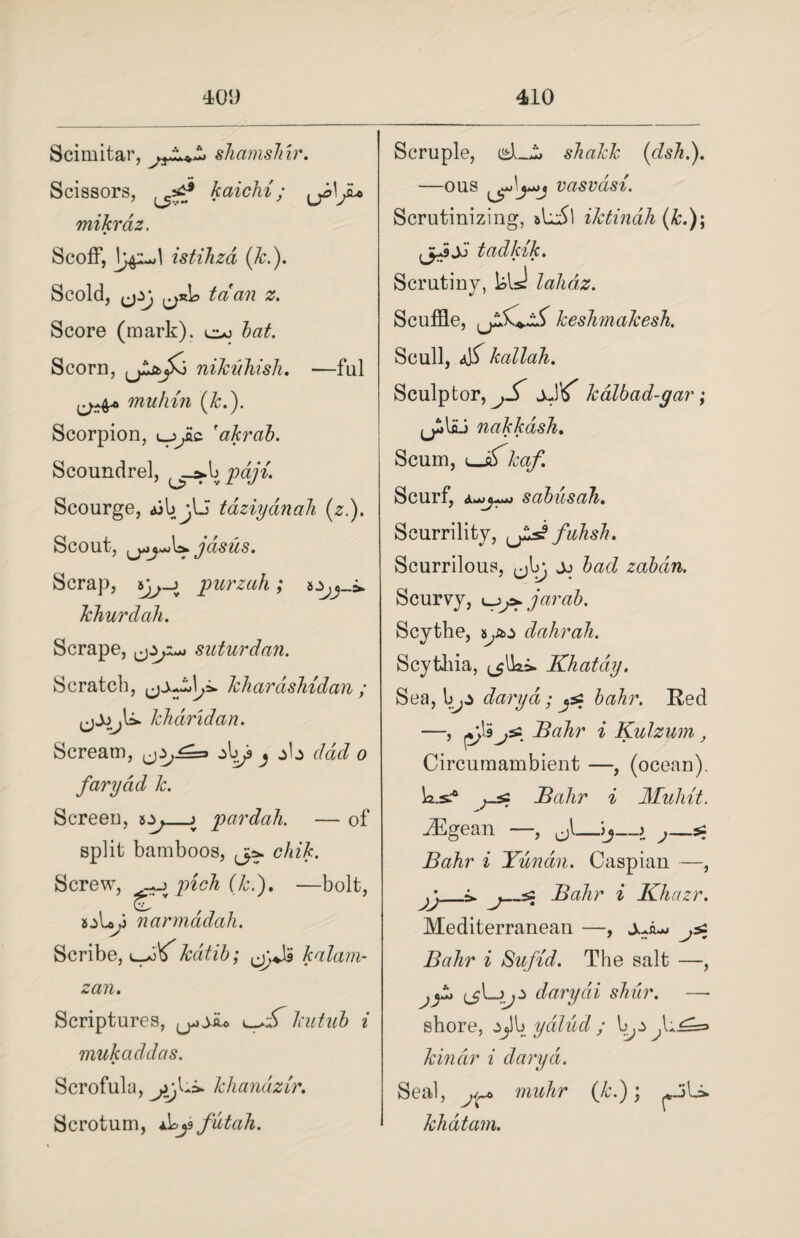 409
410
Scimitar, شمشیر shamshír.
Scissors, قیچی kaichí; مقراض
mikráz.
Scoff, استهزا istihzá (k.).
Scold, طعن زدن ta'an z.
Score (mark). بت bat.
Scorn, نکوهش nikúhish. —ful
مهین muhín (k.).
Scorpion, عقرب 'akrab.
Scoundrel, پاجی pájí.
Scourge, تازیانه táziyánah (z.).
Scout, جاسوس jásús.
Scrap, پرزه purzah; خورده
khurdah.
Scrape, ستردن suturdan.
Scratch, خراشیدن kharáshídan;
خاریدن kháridan.
Scream, داد و فریاد کردن dád o
faryád k.
Screen, پرده pardah. — of
split bamboos, چق chik.
Screw, پیچ pích (k.). —bolt,
نرماده narmádah.
Scribe, کاتب kátib; قلمزن kalam-
zan.
Scriptures, کتب مقدس kutub i
mukaddas.
Scrofula, خنازیر khanázír.
Scrotum, فوطه fútah.
Scruple, شک shakk (dsh.).
—ous وسواسی vasvásí.
Scrutinizing, اکتناه iktináh (k.);
تدقیق tadkík.
Scrutiny, لحاظ laház.
Scuffle, کشمکش keshmakesh.
Scull, کله kallah.
Sculptor, کالبد گر kálbad-gar;
نقاش nakkásh.
Scum, کف kaf.
Scurf, سبوسه sabúsah.
Scurrility, فحش fuhsh.
Scurrilous, بد زبان bad zabán.
Scurvy, جرب jarab.
Scythe, دهره dahrah.
Scythia, خطای Khatáy.
Sea, دریا daryá; بحر bahr. Red
—, بحر قلزم Bahr i Kulzum,
Circumambient —, (ocean).
بحر محیط Bahr i Muhít.
Ægean —, بحر یونان
Bahr i Yúnán. Caspian —,
بحر خزر Bahr i Khazr.
Mediterranean —, بحر سفید
Bahr i Sufíd. The salt —,
دریای شور daryái shúr. —
shore, یالود yálúd; کنار دریا
kinár i daryá.
Seal, مهر muhr (k.); خاتم
khátam.